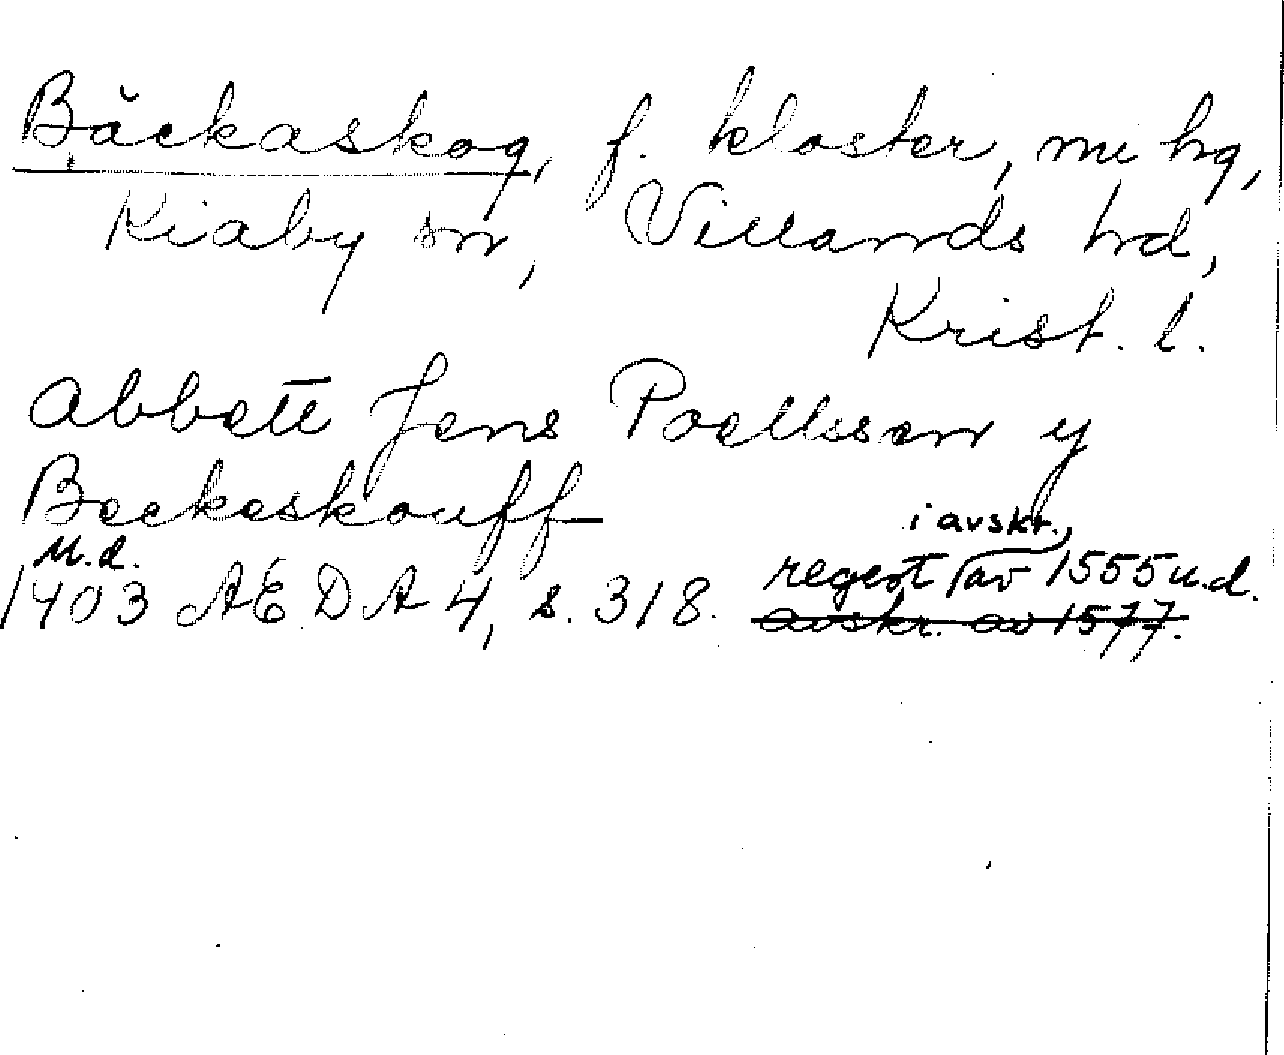 Bäckaskog, f. kloster, nu hg,
Kiaby sn, Villands hd,
Krist. l.
Abbett Jens Poellsson y
Beckeskouff
u.d.
1403 AEDA 4, s. 318. regest i avskr. av 1555 u.d.
avskr. av 1577.